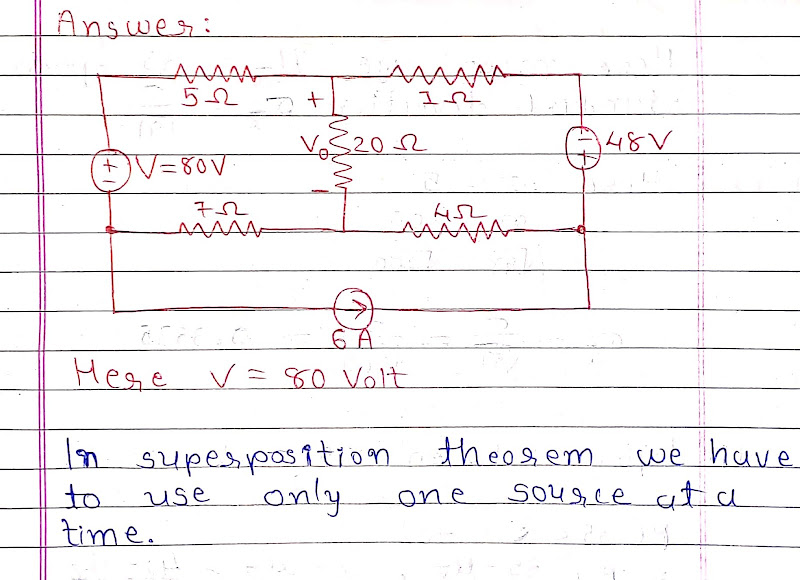 Answer:
5Ω + 1Ω
V₀ 20Ω - 48V +
+ - V=80V
-
7Ω 4Ω
6A
Here V = 80 Volt
In superposition theorem we have
to use only one source at a
time.